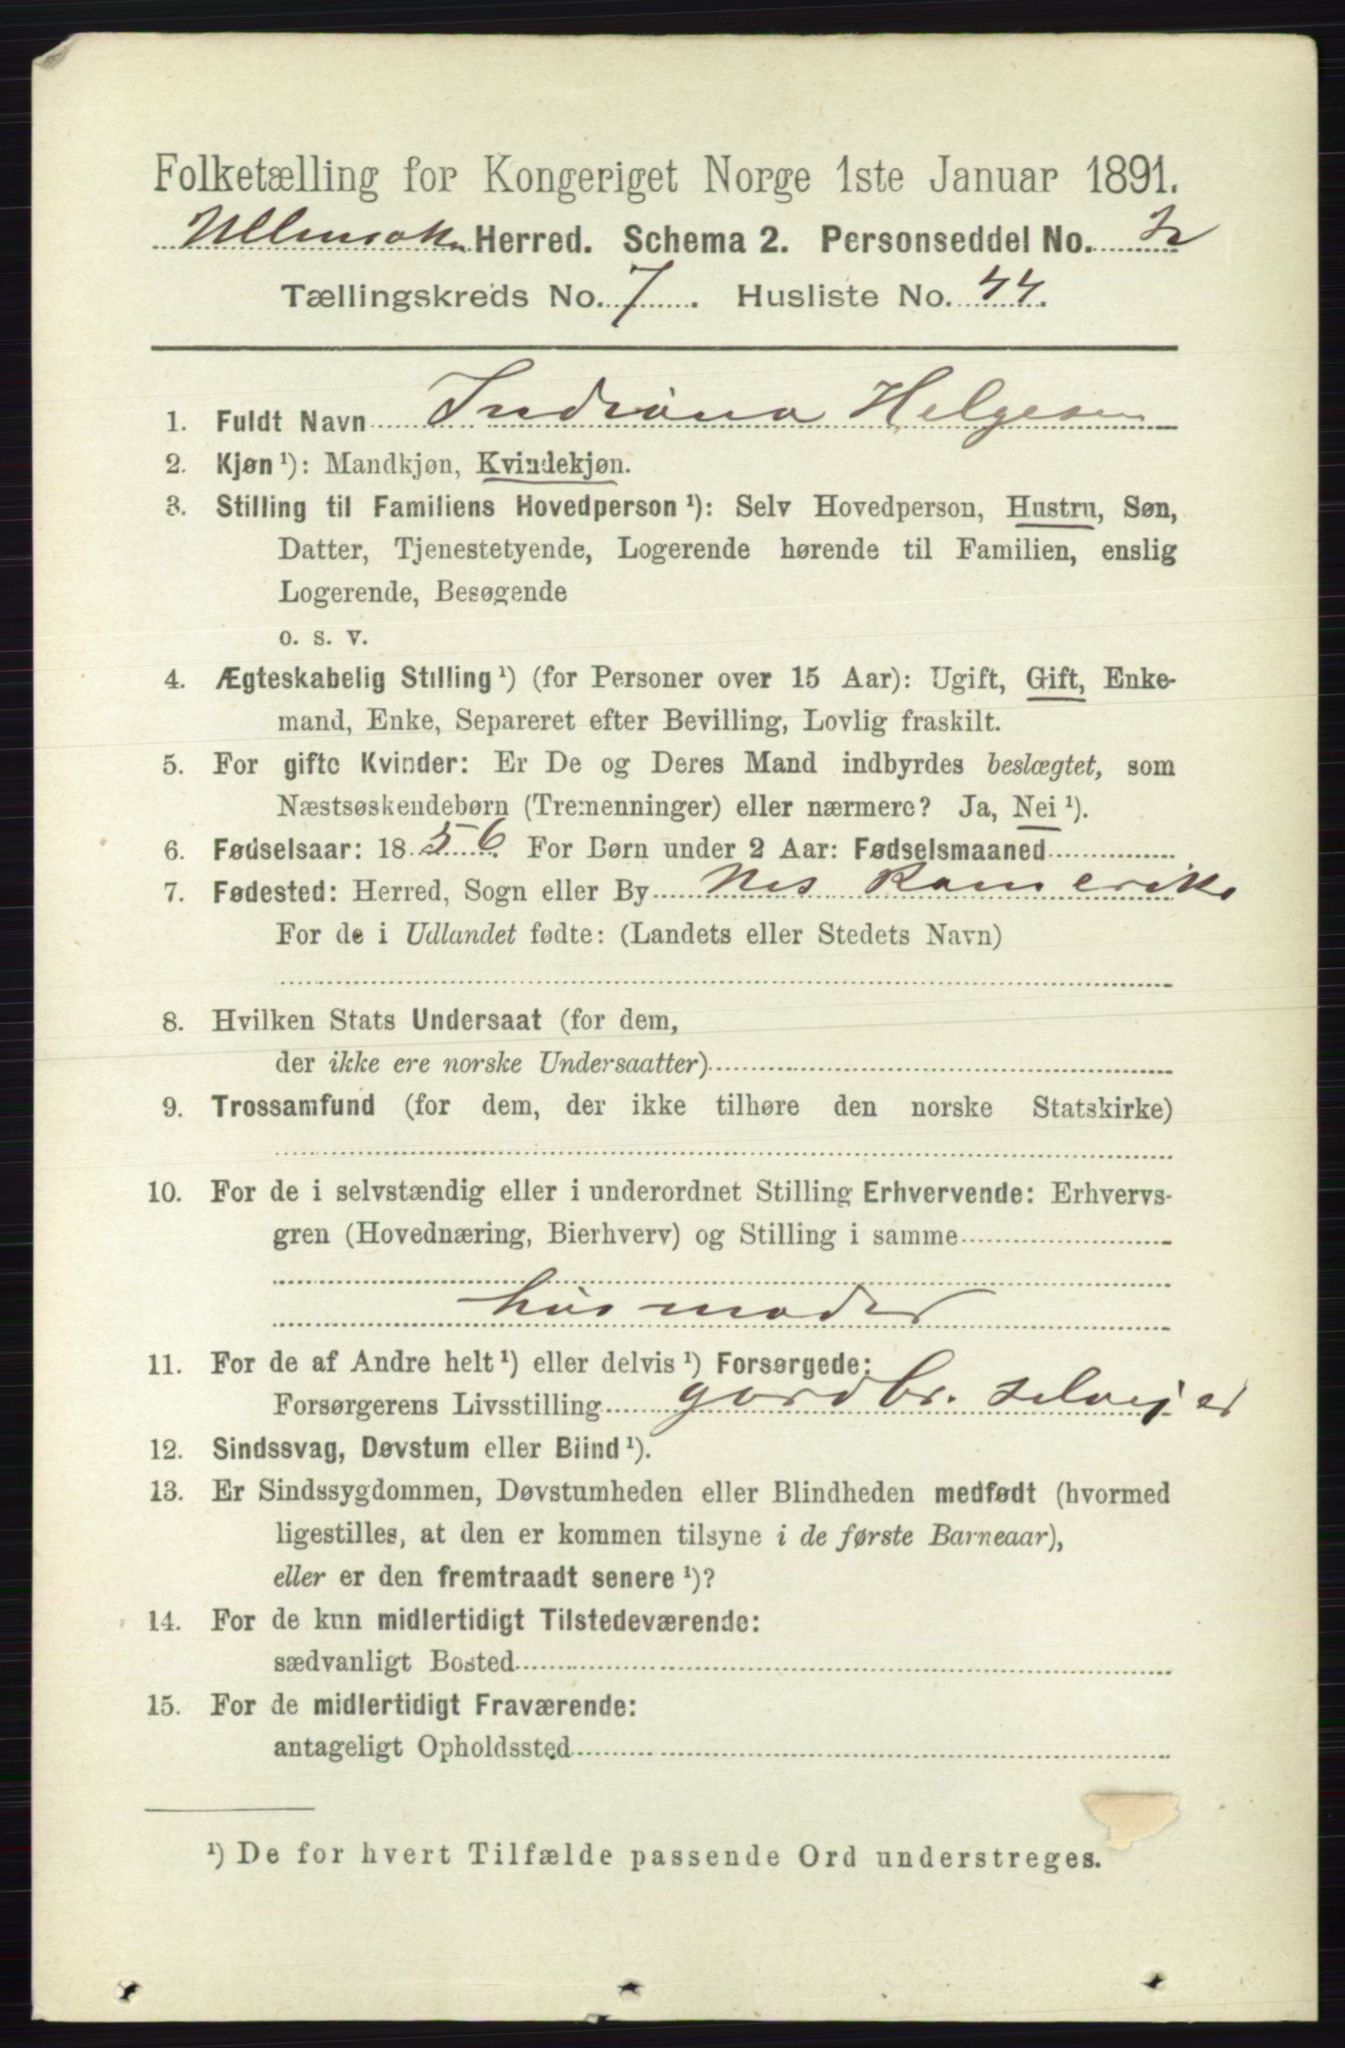 Folketælling for Kongeriget Norge 1ste Januar 1891.
Ullensaker Herred. Schema 2. Personseddel No. 2
Tællingskreds No. 7. Husliste No. 44.
1. Fuldt Navn Indiana Helgesen
2. Kjøn¹): Mandkjøn, Kvindekjøn.
3. Stilling til Familiens Hovedperson¹): Selv Hovedperson, Hustru, Søn,
Datter, Tjenestetyende, Logerende hørende til Familien, enslig
Logerende, Besøgende
o. s. v.
4. Ægteskabelig Stilling¹) (for Personer over 15 Aar): Ugift, Gift, Enke-
mand, Enke, Separeret efter Bevilling, Lovlig fraskilt.
5. For gifte Kvinder: Er De og Deres Mand indbyrdes beslægtet, som
Næstsøskendebørn (Tremenninger) eller nærmere? Ja, Nei¹).
6. Fødselsaar: 1856. For Børn under 2 Aar: Fødselsmaaned
7. Fødested: Herred, Sogn eller By Nes Romerike
For de i Udlandet fødte: (Landets eller Stedets Navn)
8. Hvilken Stats Undersaat (for dem,
der ikke ere norske Undersaatter)
9. Trossamfund (for dem, der ikke tilhøre den norske Statskirke)
10. For de i selvstændig eller i underordnet Stilling Erhvervende: Erhvervs-
gren (Hovednæring, Bierhverv) og Stilling i samme
husmoder
11. For de af Andre helt¹) eller delvis¹) Forsørgede:
Forsørgerens Livsstilling gordbr. selvejer
12. Sindssvag, Døvstum eller Blind¹).
13. Er Sindssygdommen, Døvstumheden eller Blindheden medfødt (hvormed
ligestilles, at den er kommen tilsyne i de første Barneaar),
eller er den fremtraadt senere¹)?
14. For de kun midlertidigt Tilstedeværende:
sædvanligt Bosted
15. For de midlertidigt Fraværende:
antageligt Opholdssted
¹) De for hvert Tilfælde passende Ord understreges.